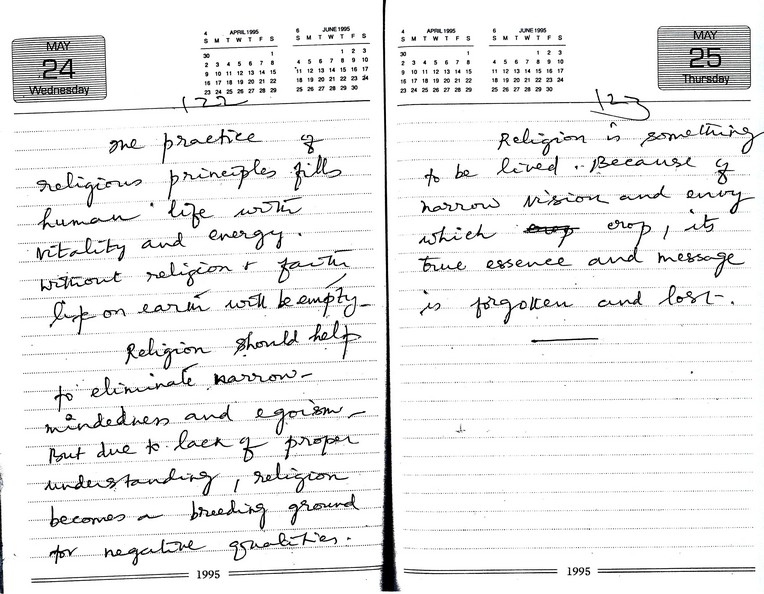 MAY
24
Wednesday
4 APRIL 1995
S M T W T F S
30 1
2 3 4 5 6 7 8
9 10 11 12 13 14 15
16 17 18 19 20 21 22
23 24 25 26 27 28 29
6 JUNE 1995
S M T W T F S
1 2 3
4 5 6 7 8 9 10
11 12 13 14 15 16 17
18 19 20 21 22 23 24
25 26 27 28 29 30
122
The practice of
religious principles fills
human life with
vitality and energy.
without religion & faith
life on earth will be empty
Religion should help
to eliminate narrow-
mindedness and egoism
But due to lack of proper
understanding, religion
becomes a breeding ground
for negative qualities.
1995
4 APRIL 1995
S M T W T F S
30 1
2 3 4 5 6 7 8
9 10 11 12 13 14 15
16 17 18 19 20 21 22
23 24 25 26 27 28 29
6 JUNE 1995
S M T W T F S
1 2 3
4 5 6 7 8 9 10
11 12 13 14 15 16 17
18 19 20 21 22 23 24
25 26 27 28 29 30
MAY
25
Thursday
123
Religion is something
to be lived. Because of
narrow vision and envy
which crop, its
true essence and message
is forgotten and lost-.
1995